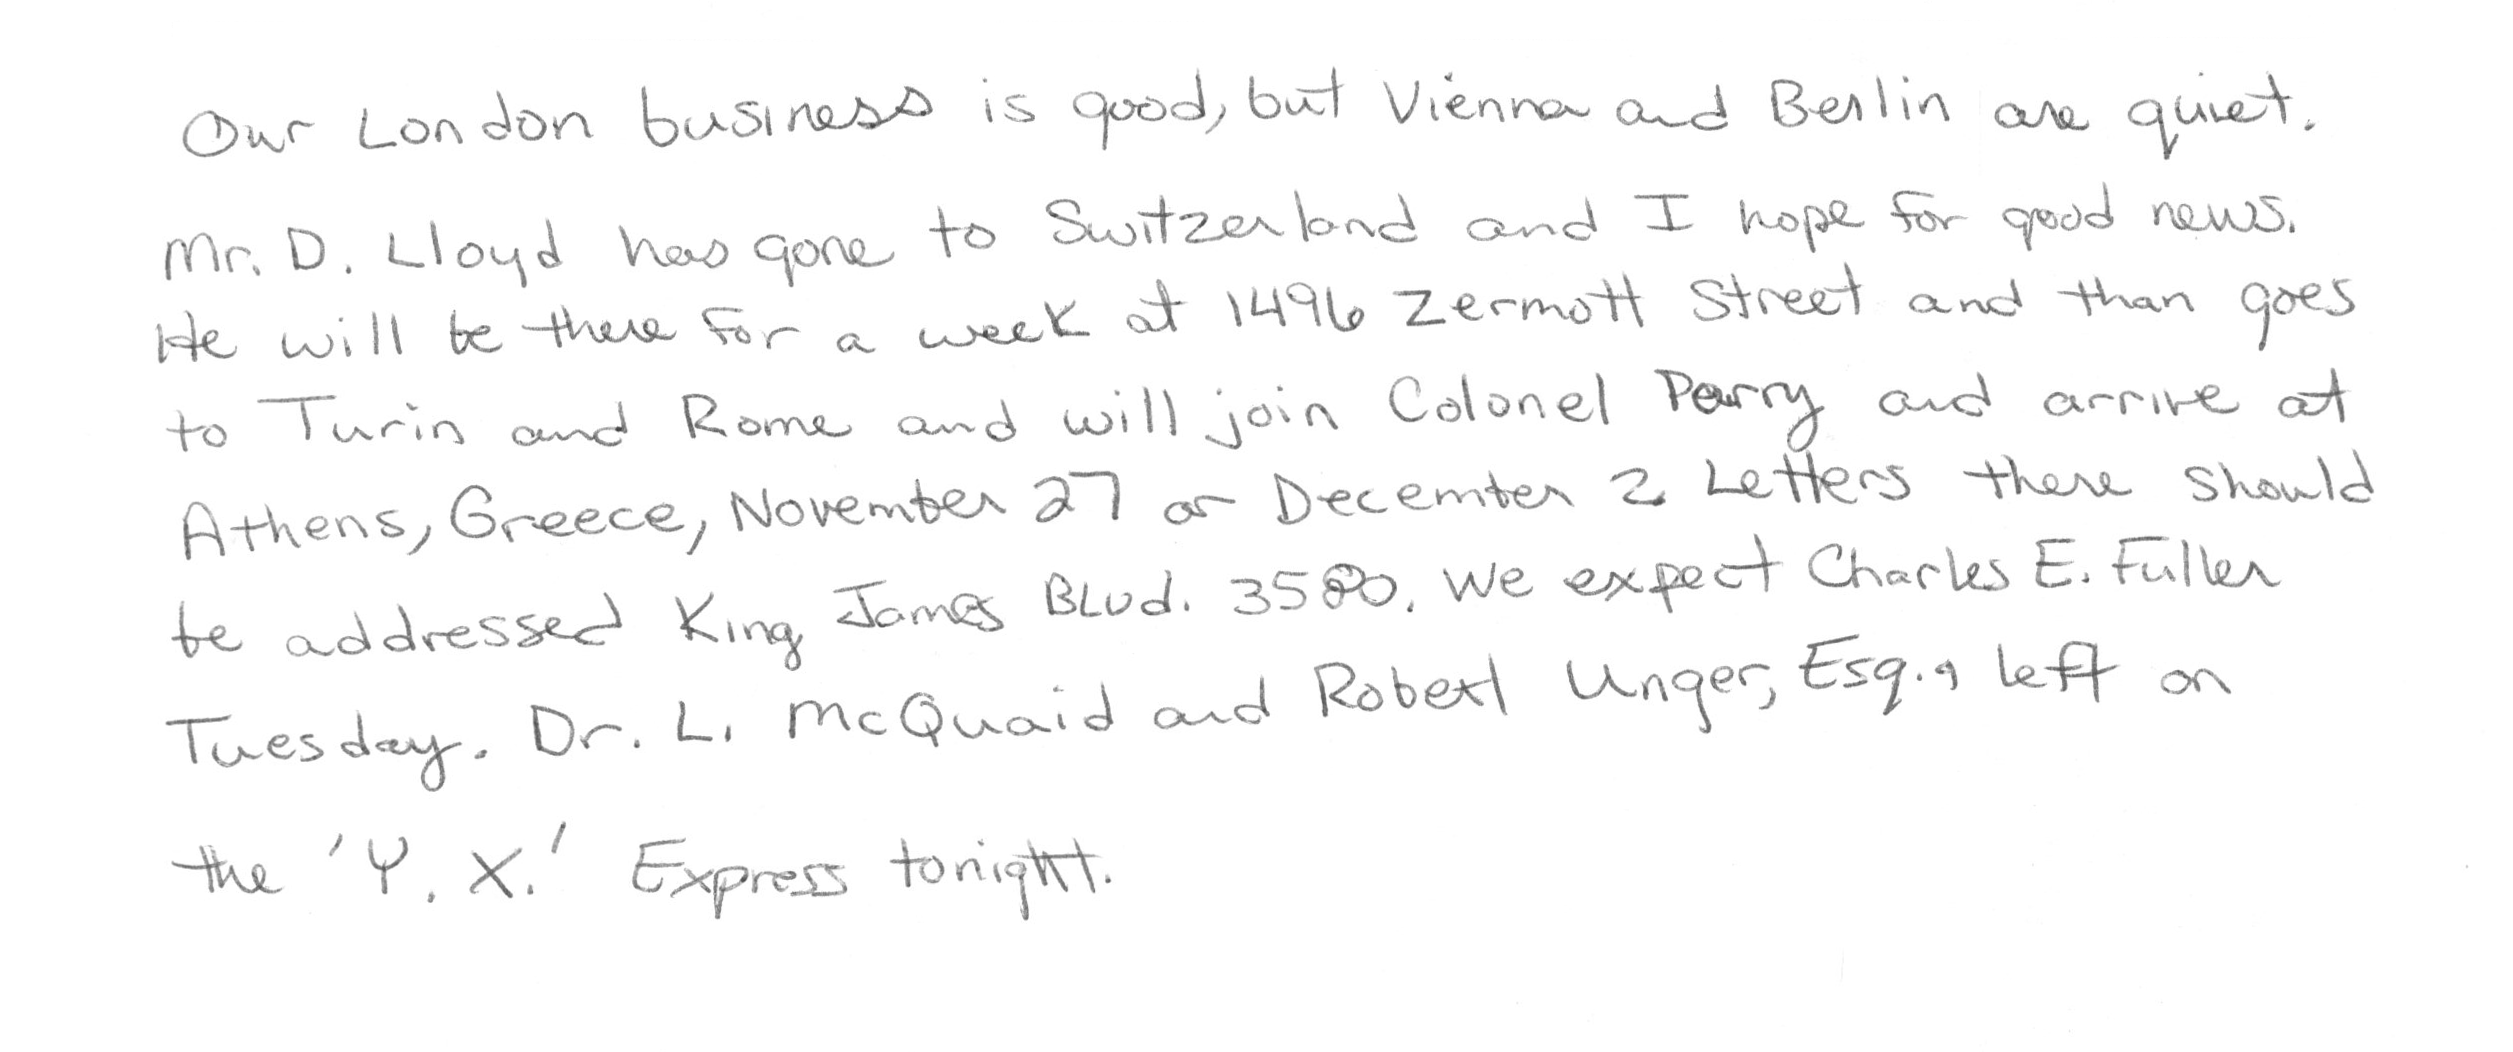 Our London business is good, but Vienna and Berlin are quiet.
Mr. D. Lloyd has gone to Switzerland and I hope for good news.
He will be there for a week at 1496 Zermott Street and than goes
to Turin and Rome and will join Colonel Parry and arrive at
Athens, Greece, November 27 or December 2. Letters there should
be addressed King James Blvd. 3580. We expect Charles E. Fuller
Tuesday. Dr. L. McQuaid and Robert Unger, Esq., left on
the 'Y. X.' Express tonight.